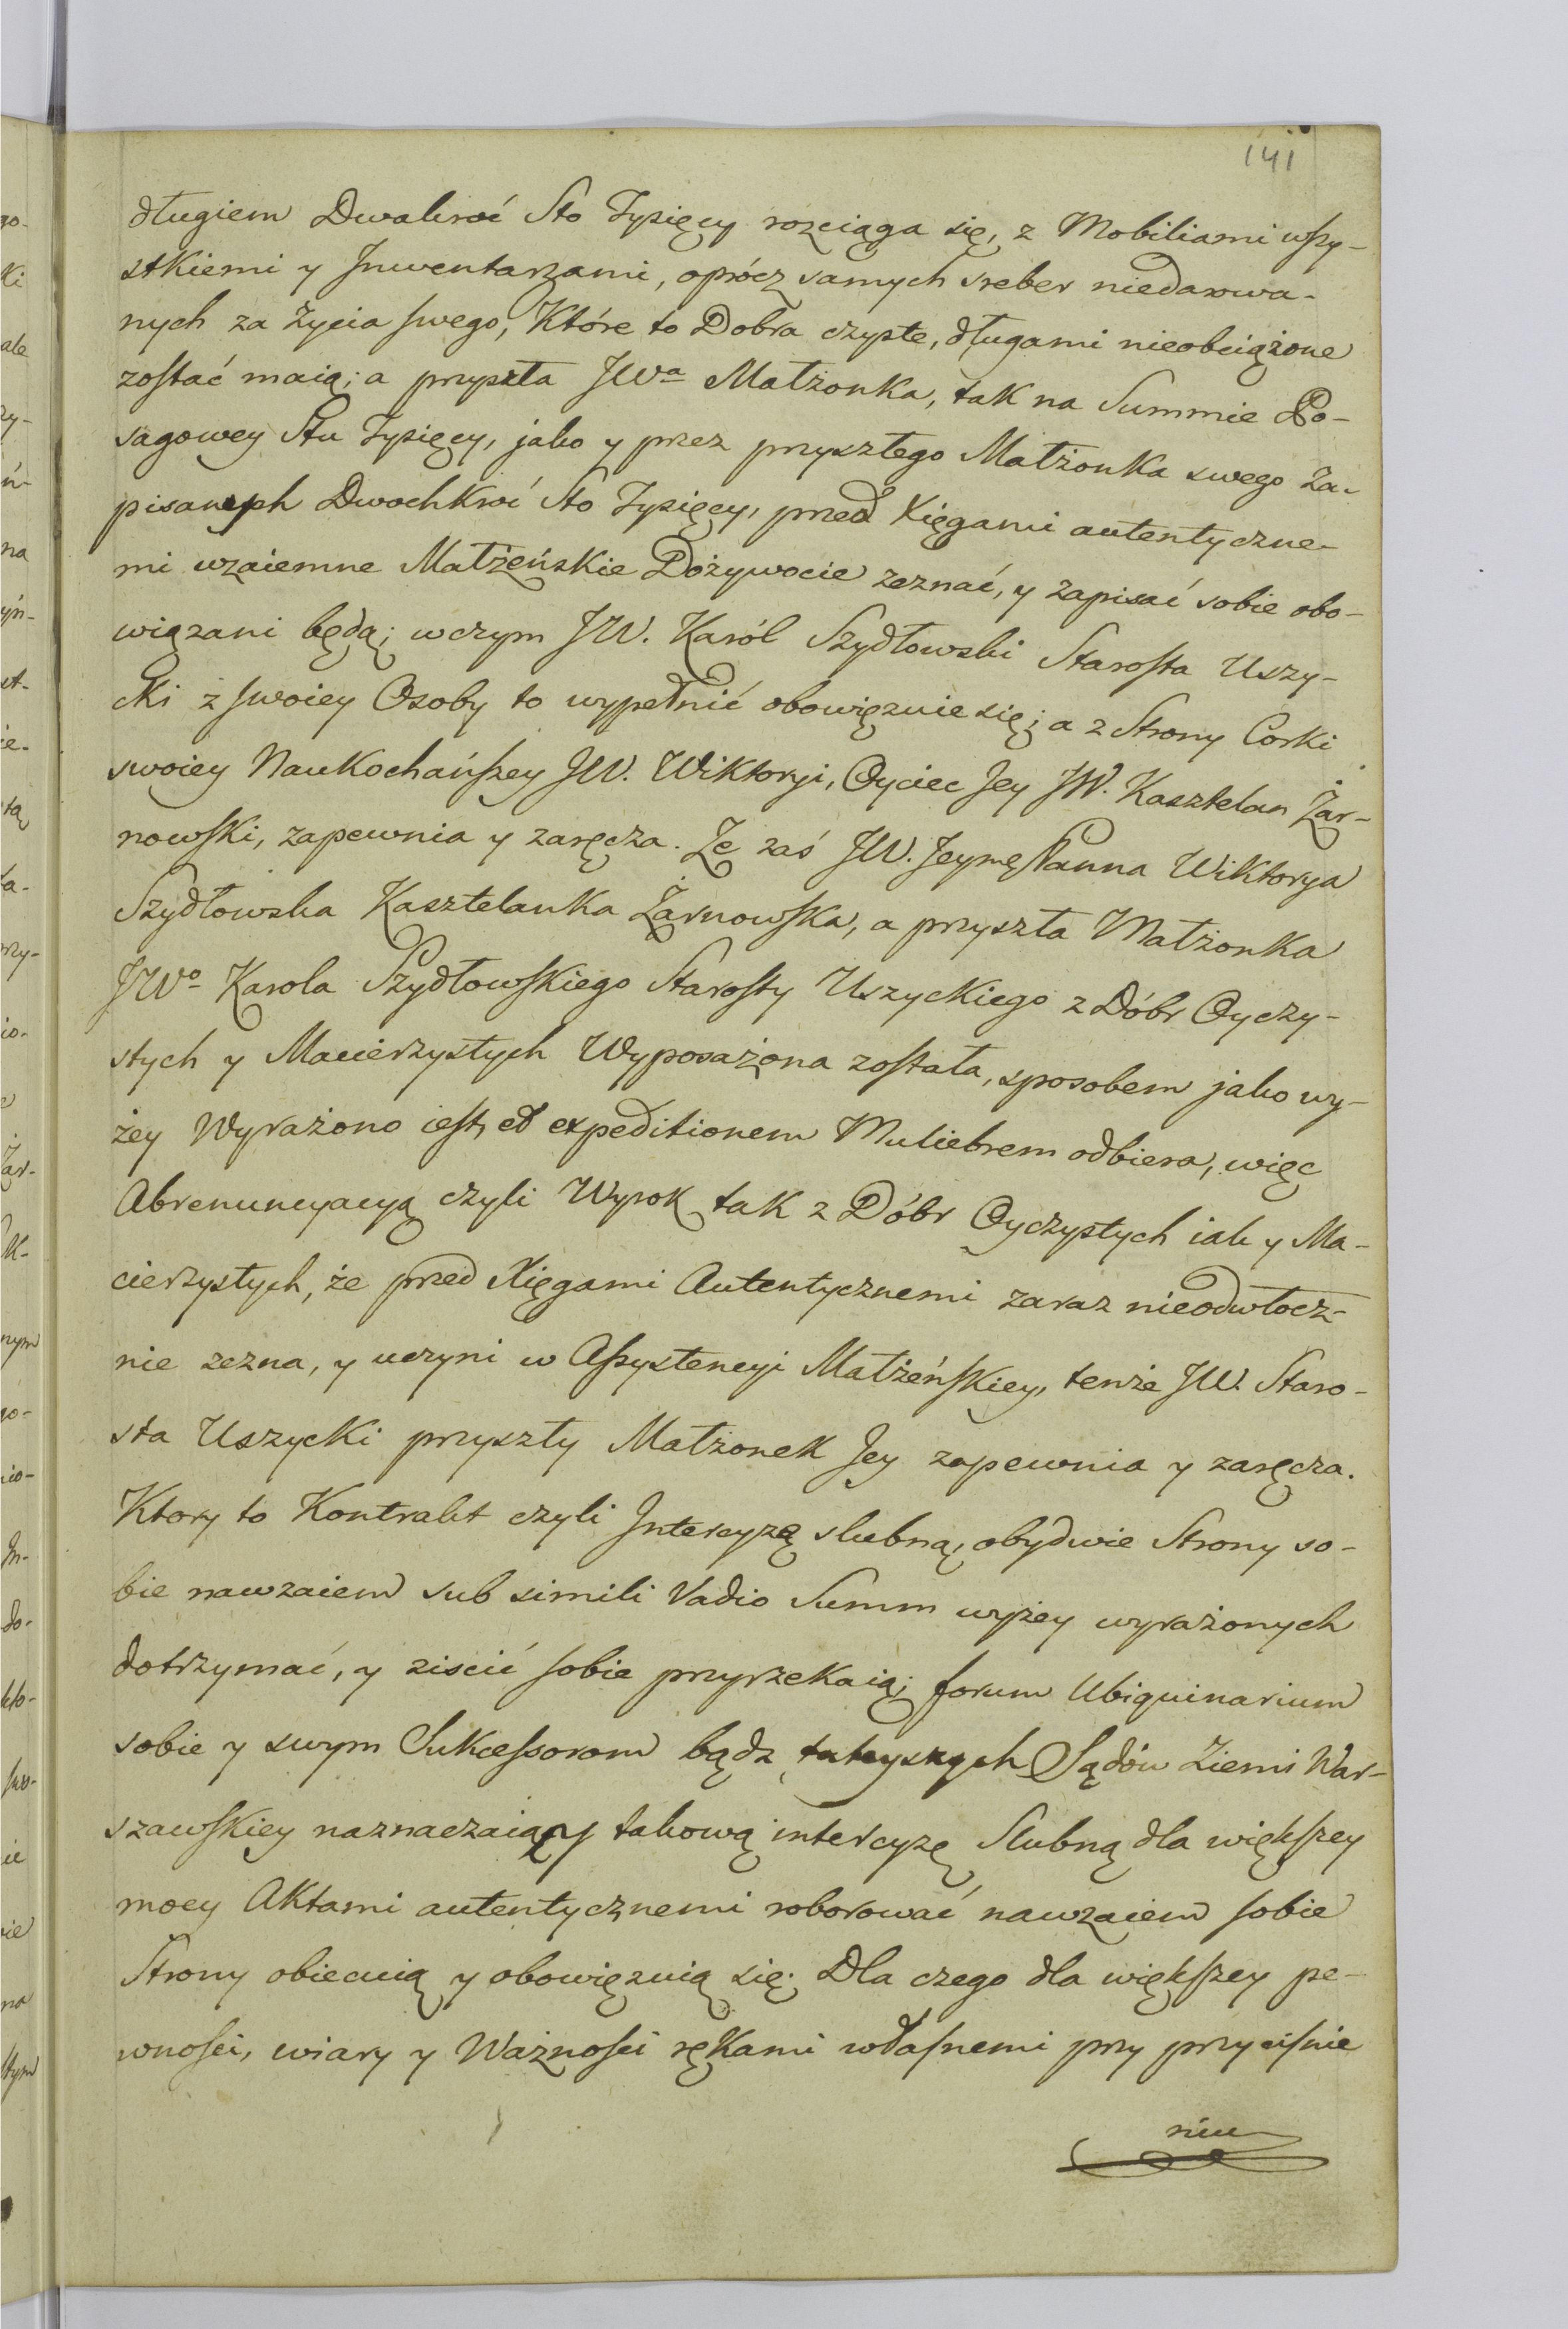 141
długiem Dwakroć Sto Tysięcy rozciąga się, z Mobiliami wszy-
stkiemi y Inwentarzami, oprócz samych sreber niedarowa-
nych za życia swego, Które to Dobra czyste, długami nieobciążone
zostać maią; a przyszła JWa Małżonka, tak na Summie Po-
sagowey Stu Tysięcy, jako y przez przyszłego Małżonka swego Za-
pisanych Dwochkroć Sto Tysięcy, przed Xięgami autentyczne-
mi wzaiemne Małżeńskie Dożywocie zeznać, y zapisać sobie obo-
wiązani będą; wczym JW. Karól Szydłowski Starosta Uszy-
cki z swoiey Osoby to wypełnić obowięzuie się; a z Strony Corki
swoiey Naukochańszey JW. Wiktoryi, Oyciec Jey JW. Kasztelan Żar-
nowski, zapewnia y zaręcza. Że zaś JW. Jeymę Panna Wiktorya
Szydłowska Kasztelanka Żarnowska, a przyszła Małżonka
JWo Karola Szydłowskiego Starosty Uszyckiego z Dóbr Oyczy-
stych y Macierzystych Wyposażona została, sposobem jako wy-
żey Wyrażono iest, et expeditionem Muliebrem odbiera, więc
Abrenuncyacyą czyli Wyrok tak z Dóbr Oyczystych iak y Ma-
cierzystych, że przed Xięgami Autentycznemi zaraz nieodwłocz-
nie zezna, y uczyni w Assystencyi Małżeńskiey, tenże JW. Staro-
sta Uszycki przyszły Małżonek Jey zapewnia y zaręcza.
Ktory to Kontrakt czyli Intercyzą slubną, obydwie Strony so-
bie nawzaiem sub simili Vadio Summ wyżey wyrażonych
dotrzymać, y ziscić sobie przyrzekaią; forum Ubiquinarium
sobie y swym Sukcessorom bądz tuteyszych Sądów Ziemi War-
szawskiey naznaczaiąc y takową intercyzę Slubną dla większey
mocy Aktami autentycznemi roborować nawzaiem sobie
Strony obiecuią y obowięzuią się. Dla czego dla większey pe-
wności, wiary y Ważności rękami własnemi przy przyciśnie
niu